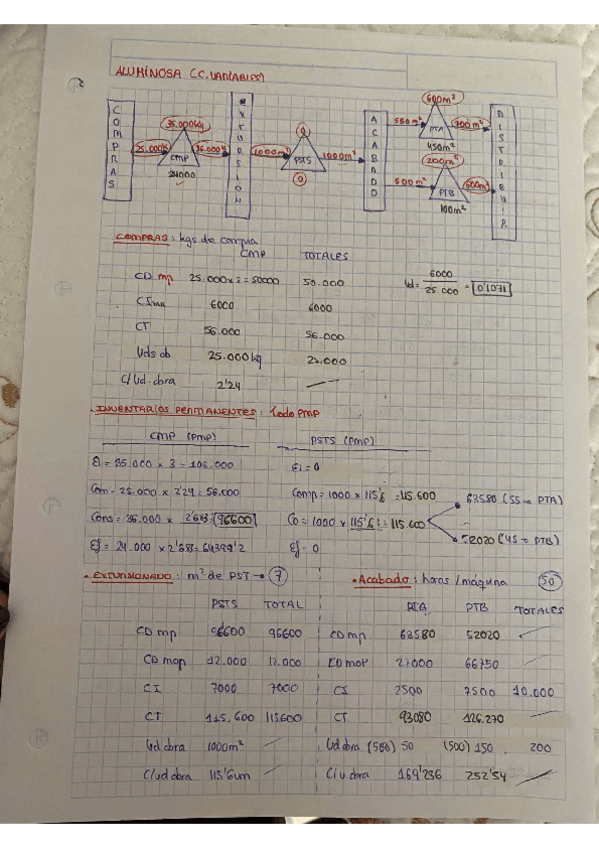 ALUMINOSA (C. VARIABLES)
COMPRAS
25.000k
35.000kg
CMP
24000
36.000k
EXTURSION
1000m²
0
PSTS
0
1000m²
ACABADO
550m²
600m²
PTA
450m²
700m²
500m²
200m²
PTB
100m²
600m²
DISTRIBUIR
COMPRAS: kgs de compra
CMP TOTALES
CD mp 25.000x2=50000 50.000
Ud= 6000 / 25.000 = 0'1071
6000 6000
CT 56.000 56.000
Uds ob 25.000kg
C/Ud. obra 2'24
INVENTARIOS PERMANENTES: todo PMP
CMP (PMP) PSTS (PMP)
Ei = 35.000 x 3 = 105.000 Ei = 0
Com = 25.000 x 2'24 = 56.000 Comp = 1000 x 115'6 = 115.600
63580 (55 → PTA)
Cons = 36.000 x 2'683 = 96600 Co = 1000 x 115'6 = 115.600
52020 (45 → PTB)
Ef = 24.000 x 2'683 = 64399'2 Ef = 0
EXTURSIONADO: m² de PST → 7
Acabado: horas/máquina 50
PSTS TOTAL
PTA PTB TOTALES
CD mp 96600 96600 CD mp 63580 52020
CD mop 12.000 12.000 CD MOP 27000 66750
CI 7000 7000 CI 2500 7500 10.000
CT 115.600 115600 CT 93080 126.270
Ud obra 1000m² Ud obra (550) 50 (500) 150 200
C/ud obra 115'6um C/u obra 169'236 252'54